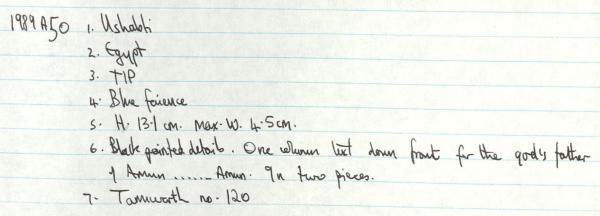 1989 A50 1. Ushabti
2. Egypt
3. TIP
4. Blue faience
5. H. 13.1 cm. Max. W. 4.5cm.
6. Black painted details. One column text down front for the god's father
of Amun ...... Amun. In two pieces.
7. Tamworth no. 120